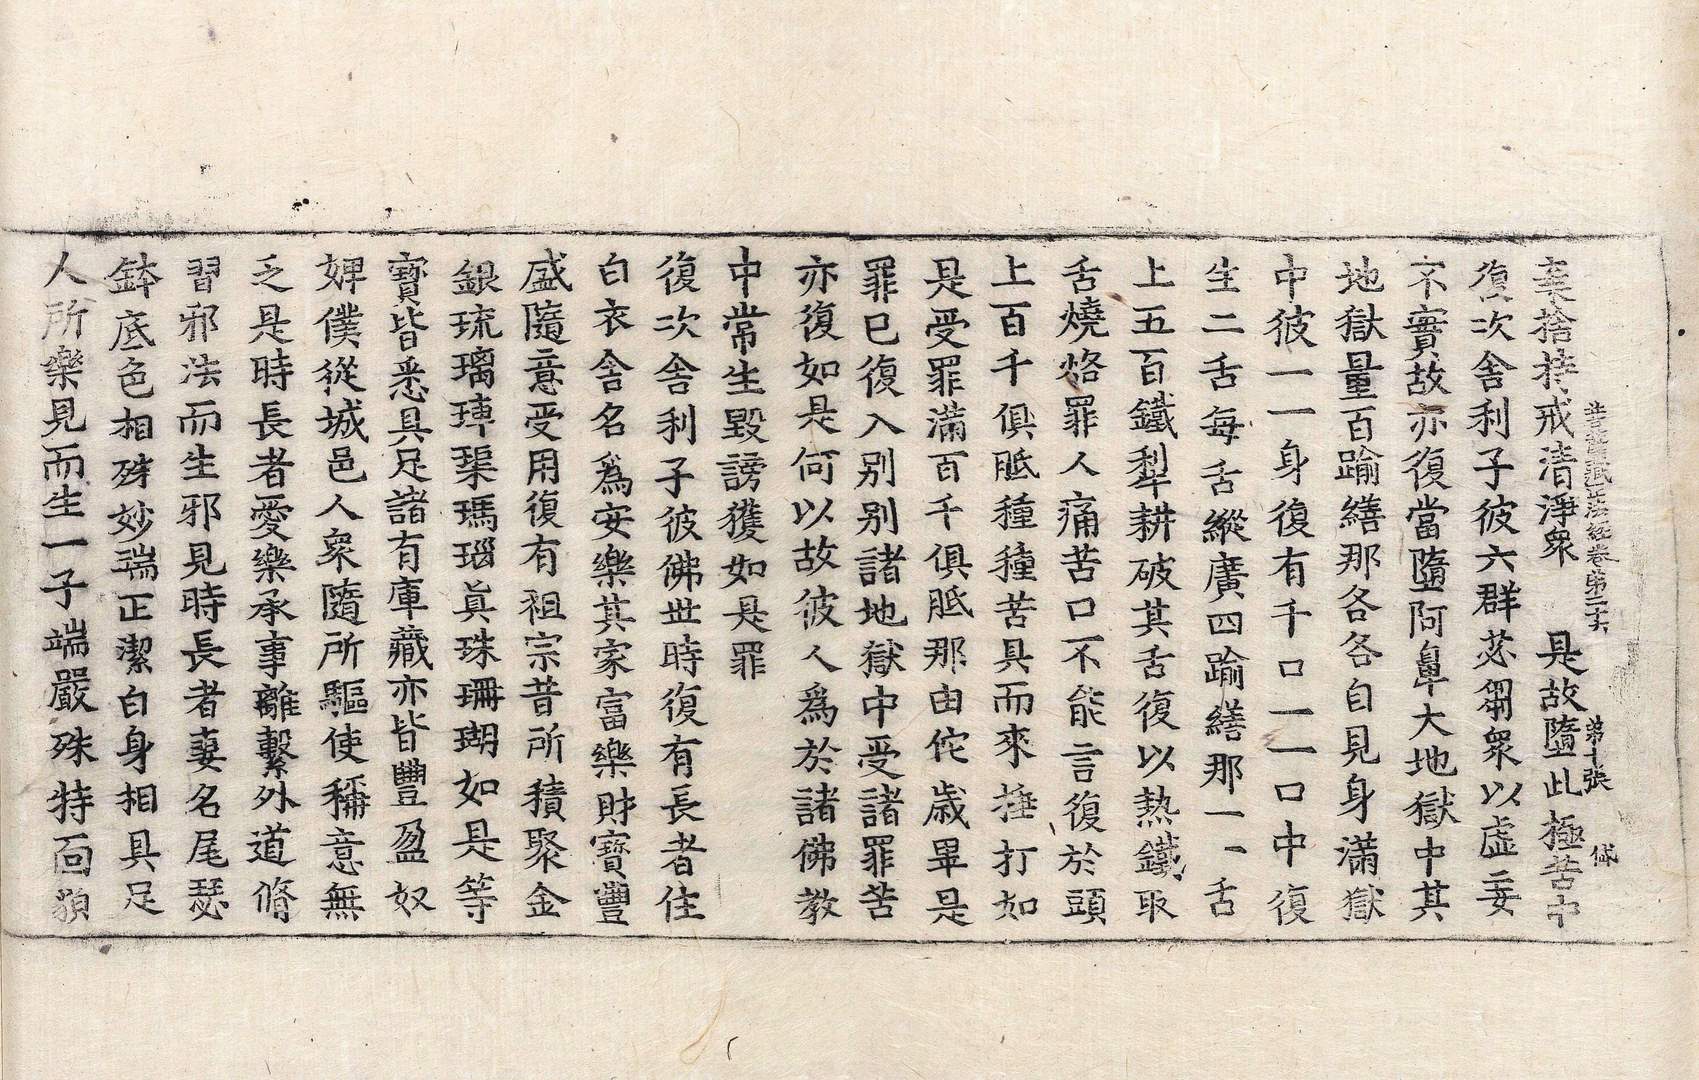 菩薩藏法經卷第二十六　第十張　𠌯
棄捨持戒清淨衆　是故墮此極苦中
復次舍利子彼六群苾芻衆以虛妄
不實故亦復當墮阿鼻大地獄中其
地獄量百踰繕那各各自見身滿獄
中彼一一身復有千口一一口中復
生二舌每舌縱廣四踰繕那一一舌
上五百鐵犁耕破其舌復以熱鐵取
舌燒烙罪人痛苦口不能言復於頭
上百千俱胝種種苦具而來捶打如
是受罪滿百千俱胝那由佗歲畢是
罪已復入別別諸地獄中受諸罪苦
亦復如是何以故彼人爲於諸佛教
中常生毀謗獲如是罪
復次舍利子彼佛世時復有長者住
白衣舍名爲安樂其家富樂財寶豐
盛隨意受用復有祖宗昔所積聚金
銀琉璃硨磲瑪瑙真珠珊瑚如是等
寶皆悉具足諸有庫藏亦皆豐盈奴
婢僕從城邑人衆隨所驅使稱意無
乏是時長者愛樂承事離繫外道脩
習邪法而生邪見時長者妻名尾瑟
鉢底色相殊妙端正潔白身相具足
人所樂見而生一子端嚴殊特面貌